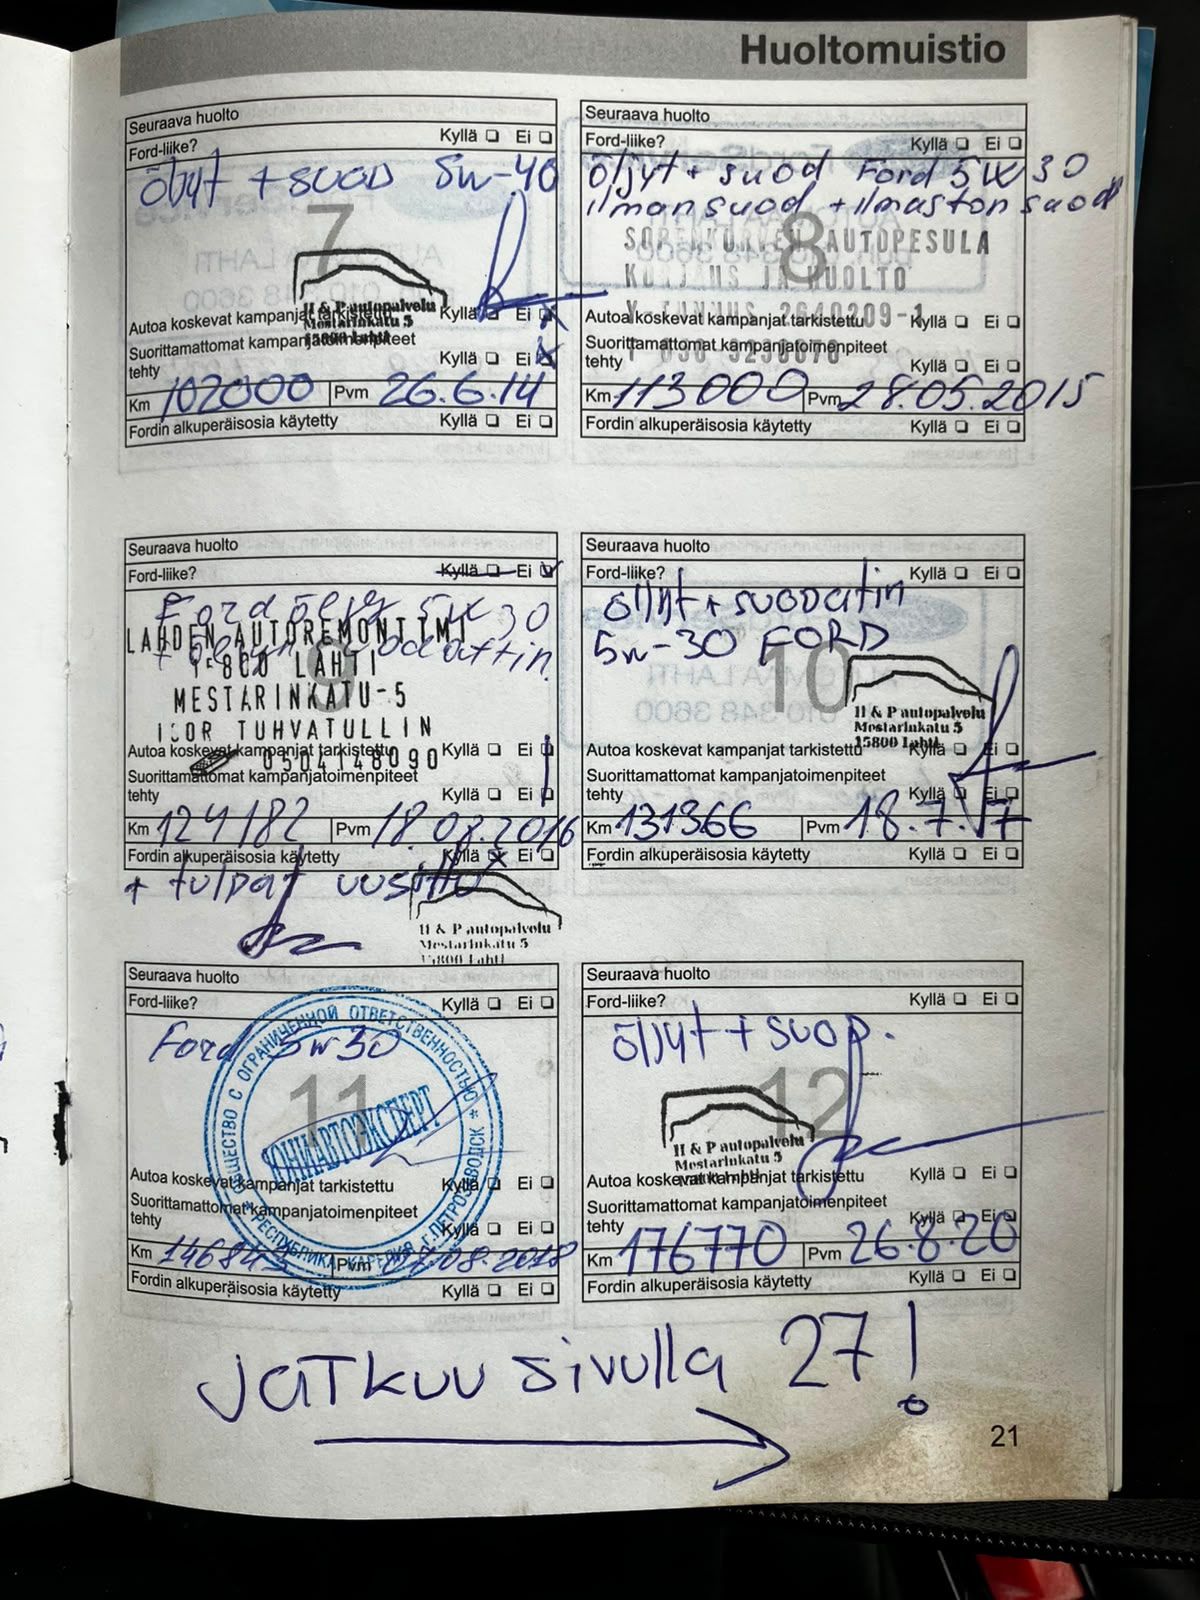 Huoltomuistio
Seuraava huolto
Ford-liike? Kyllä Ei
öljyt + suod 5w-40
7
H & P autopalvelu
Mestarinkatu 5
15800 Lahti
Autoa koskevat kampanjat tarkistettu Kyllä Ei
Suorittamattomat kampanjatoimenpiteet
tehty Kyllä Ei
Km 102000 Pvm 26.6.14
Fordin alkuperäisosia käytetty Kyllä Ei
Seuraava huolto
Ford-liike? Kyllä Ei
öljyt + suod Ford 5W30
ilmansuod + ilmastonsuod
8
AUTOPESULA
KORJAUS JA HUOLTO
Y-TUNNUS 2640209-1
Autoa koskevat kampanjat tarkistettu Kyllä Ei
Suorittamattomat kampanjatoimenpiteet
tehty Kyllä Ei
Km 113000 Pvm 28.05.2015
Fordin alkuperäisosia käytetty Kyllä Ei
Seuraava huolto
Ford-liike? Kyllä Ei
Ford öljy 5W30
LAHDEN AUTOREMONTTMI
9
LAHTI
MESTARINKATU-5
IGOR TUHVATULLIN
0504148090
Autoa koskevat kampanjat tarkistettu Kyllä Ei
Suorittamattomat kampanjatoimenpiteet
tehty Kyllä Ei
Km 124182 Pvm 18.08.2016
Fordin alkuperäisosia käytetty Kyllä Ei
+ tulpat uusittu
H & P autopalvelu
Mestarinkatu 5
15800 Lahti
Seuraava huolto
Ford-liike? Kyllä Ei
öljyt + suodatin
5w-30 FORD
10
H & P autopalvelu
Mestarinkatu 5
15800 Lahti
Autoa koskevat kampanjat tarkistettu Kyllä Ei
Suorittamattomat kampanjatoimenpiteet
tehty Kyllä Ei
Km 131366 Pvm 18.7.17
Fordin alkuperäisosia käytetty Kyllä Ei
Seuraava huolto
Ford-liike? Kyllä Ei
Ford 5w30
11
ОБЩЕСТВО С ОГРАНИЧЕННОЙ ОТВЕТСТВЕННОСТЬЮ
ЮНИАВТОЭКСПЕРТ
РЕСПУБЛИКА КАРЕЛИЯ г. ПЕТРОЗАВОДСК
Autoa koskevat kampanjat tarkistettu Kyllä Ei
Suorittamattomat kampanjatoimenpiteet
tehty Kyllä Ei
Km 146843 Pvm 07.08.2018
Fordin alkuperäisosia käytetty Kyllä Ei
Seuraava huolto
Ford-liike? Kyllä Ei
öljyt + suod.
12
H & P autopalvelu
Mestarinkatu 5
Autoa koskevat kampanjat tarkistettu Kyllä Ei
Suorittamattomat kampanjatoimenpiteet
tehty Kyllä Ei
Km 176770 Pvm 26.8.20
Fordin alkuperäisosia käytetty Kyllä Ei
Jatkuu sivulla 27!
21